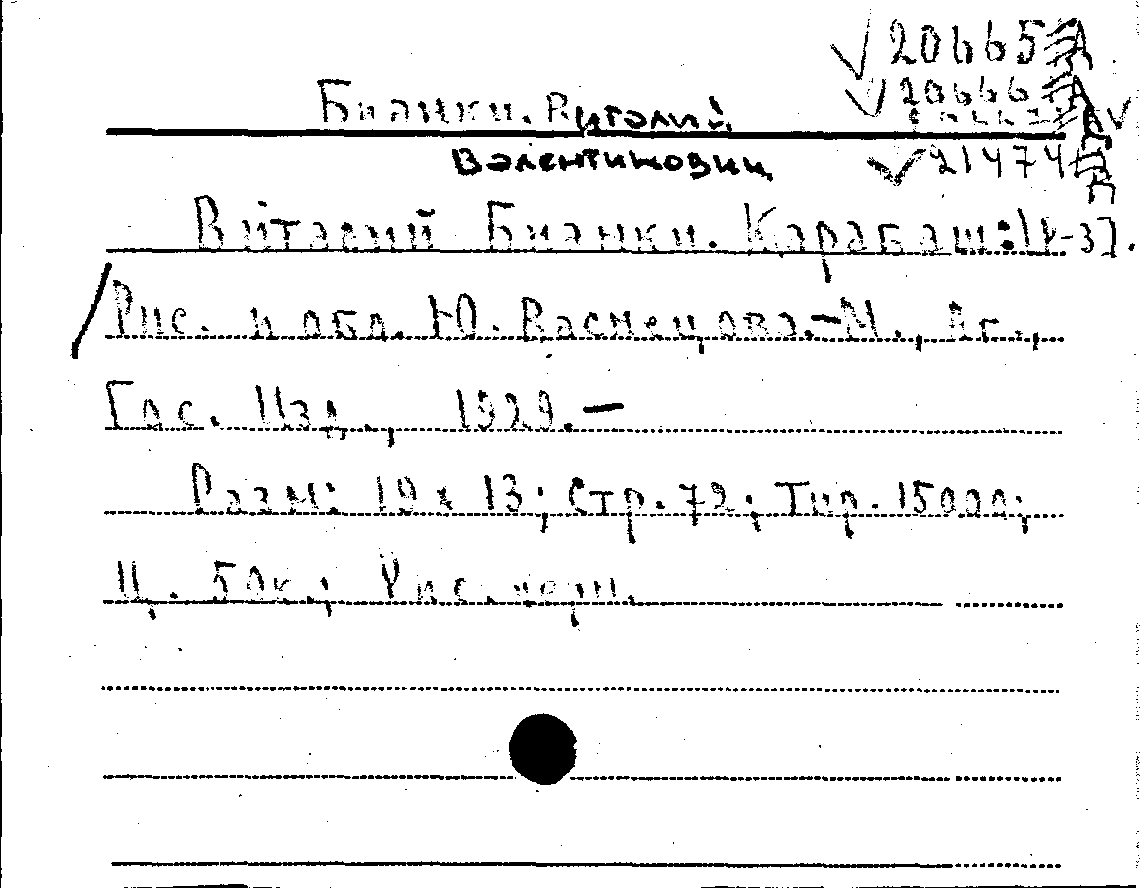 20665
Бианки. Виталий
20666
21474
Валентинович
Виталий Бианки. Карабаш:
Рис. и обл. Ю. Васнецова.-М., Лг.,
Гос. Изд., 1929.-
Разм: 19 x 13; Стр. 72; Тир. 15000;
Ц. 50к.; Рис. черн.